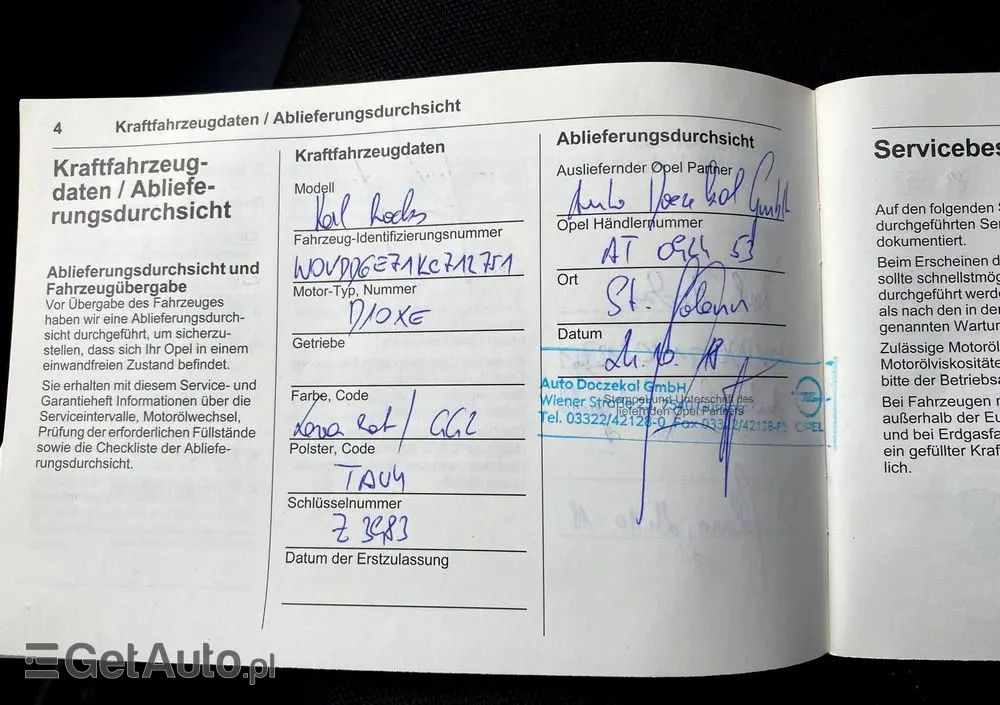 4
Kraftfahrzeugdaten / Ablieferungsdurchsicht
Kraftfahrzeug-
daten / Abliefe-
rungsdurchsicht
Ablieferungsdurchsicht und
Fahrzeugübergabe
Vor Übergabe des Fahrzeuges
haben wir eine Ablieferungsdurch-
sicht durchgeführt, um sicherzu-
stellen, dass sich Ihr Opel in einem
einwandfreien Zustand befindet.
Sie erhalten mit diesem Service- und
Garantieheft Informationen über die
Serviceintervalle, Motorölwechsel,
Prüfung der erforderlichen Füllstände
sowie die Checkliste der Abliefe-
rungsdurchsicht.
Kraftfahrzeugdaten
Modell
Karl Rocks
Fahrzeug-Identifizierungsnummer
W0VDD6E71KC712751
Motor-Typ, Nummer
D10XE
Getriebe
Farbe, Code
Lava Rot / GG2
Polster, Code
TAU4
Schlüsselnummer
Z 3983
Datum der Erstzulassung
Ablieferungsdurchsicht
Ausliefernder Opel Partner
Auto Doczekal GmbH
Opel Händlernummer
AT 0944 53
Ort
St.
Datum
Auto Doczekal GmbH
Stempel und Unterschrift des
Wiener Straße
liefernden Opel Partners
Tel. 03322/42128-0 Fax 03322/42128-85
OPEL
Servicebes
Auf den folgenden S
durchgeführten Ser
dokumentiert.
Beim Erscheinen d
sollte schnellstmög
durchgeführt werde
als nach den in der
genannten Wartun
Zulässige Motoröl
Motorölviskositäte
bitte der Betriebsa
Bei Fahrzeugen m
außerhalb der Eu
und bei Erdgasfa
ein gefüllter Kraf
lich.
GetAuto.pl